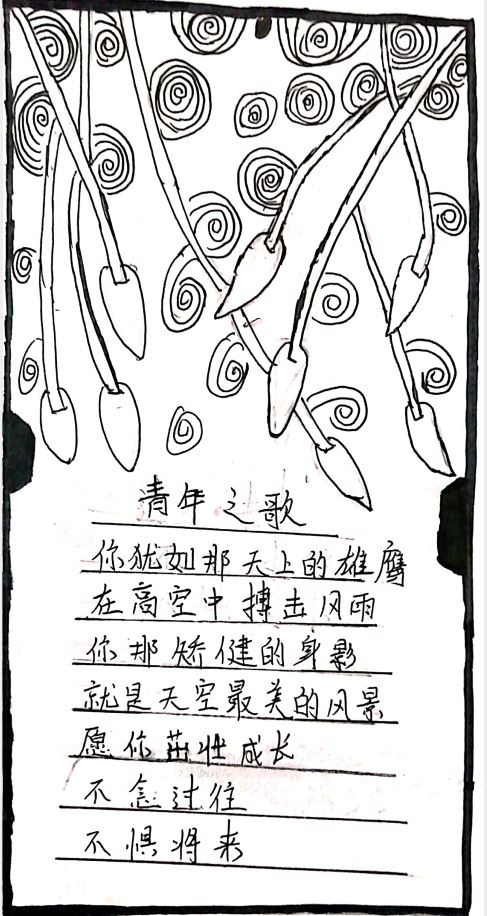 青年之歌
你犹如那天上的雄鹰
在高空中搏击风雨
你那矫健的身影
就是天空最美的风景
愿你茁壮成长
不念过往
不惧将来